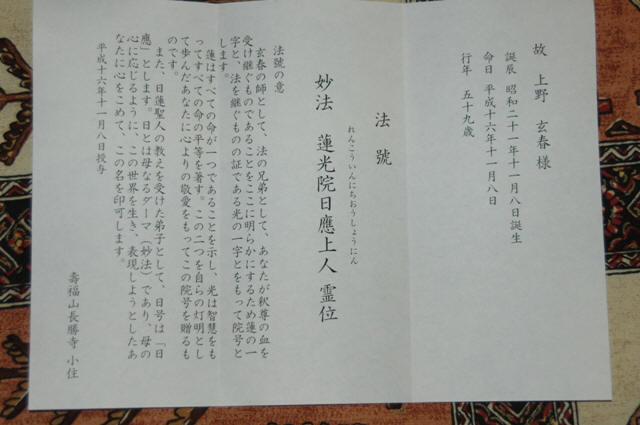 故 上野 玄春 様
誕辰 昭和二十一年十一月八日誕生
命日 平成十六年十一月八日
行年 五十九歳
法號
れんこういんにちおうしょうにん
妙法 蓮光院日應上人 霊位
法號の意
玄春の師として、法の兄弟として、あなたが釈尊の血を
受け継ぐものであることをここに明らかにするため蓮の一
字と、法を継ぐものの証である光の一字とをもって院号と
します。
蓮はすべての命が一つであることを示し、光は智慧をも
ってすべての命の平等を著す。この二つを自らの灯明とし
て歩んだあなたに心よりの敬愛をもってこの院号を贈るも
のです。
また、日蓮聖人の教えを受けた弟子として、日号は「日
應」とします。日とは母なるダーマ（妙法）であり、母の
心に応じるように、この世界を生き、表現しようとしたあ
なたに心をこめて、この名を印可します。
平成十六年十一月八日授与
壽福山長勝寺 小住